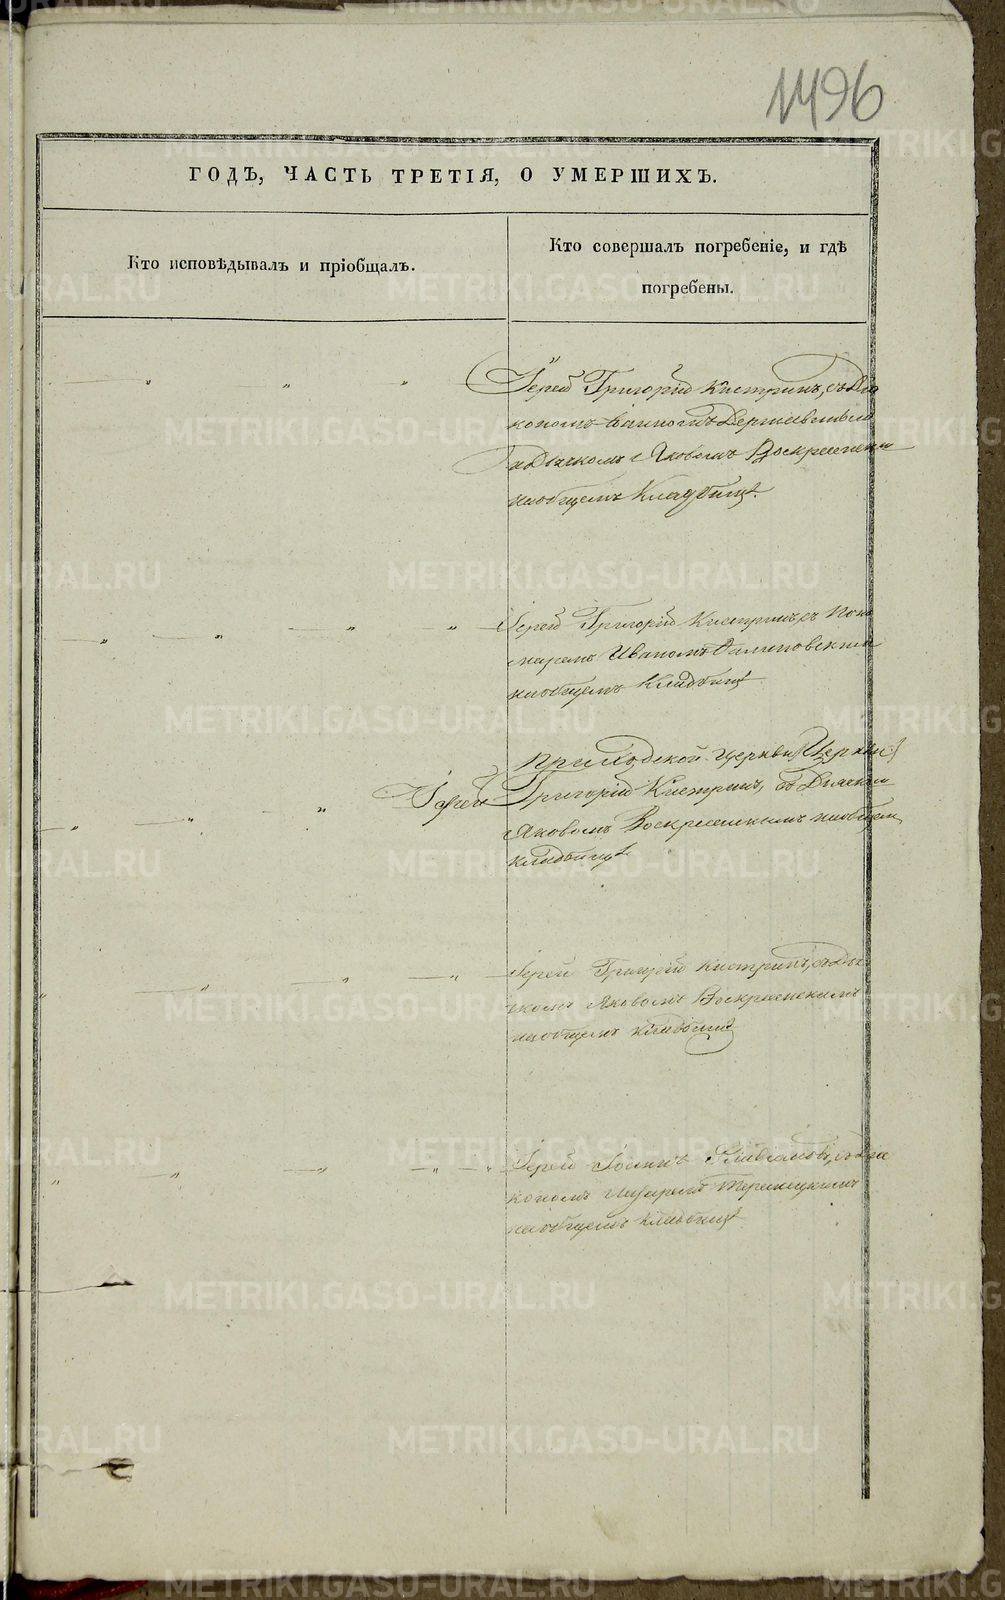 1496
ГОДЪ, ЧАСТЬ ТРЕТІЯ, О УМЕРШИХЪ.
Кто исповѣдывалъ и пріобщалъ.
Кто совершалъ погребеніе, и гдѣ
погребены.
Іерей Григорій Кистринъ, съ Діа
кономъ
и Дьячкомъ Яковомъ Воскресенски
на общемъ Кладбищѣ.
Іерей Григорій Кистринъ съ Поно
маремъ Иваномъ
на общемъ Кладбищѣ
Приходской Церкви (Церкви)
Іерей Григорій Кистринъ, съ Дьячком
Яковомъ Воскресенскимъ на общем
кладбищѣ
Іерей Григорій Кистринъ, съ Дья
чкомъ Яковомъ Воскресенскимъ
на общемъ кладбищѣ
Іерей Іоаннъ съ Діа
кономъ
на общемъ кладбищѣ
METRIKI.GASO-URAL.RU